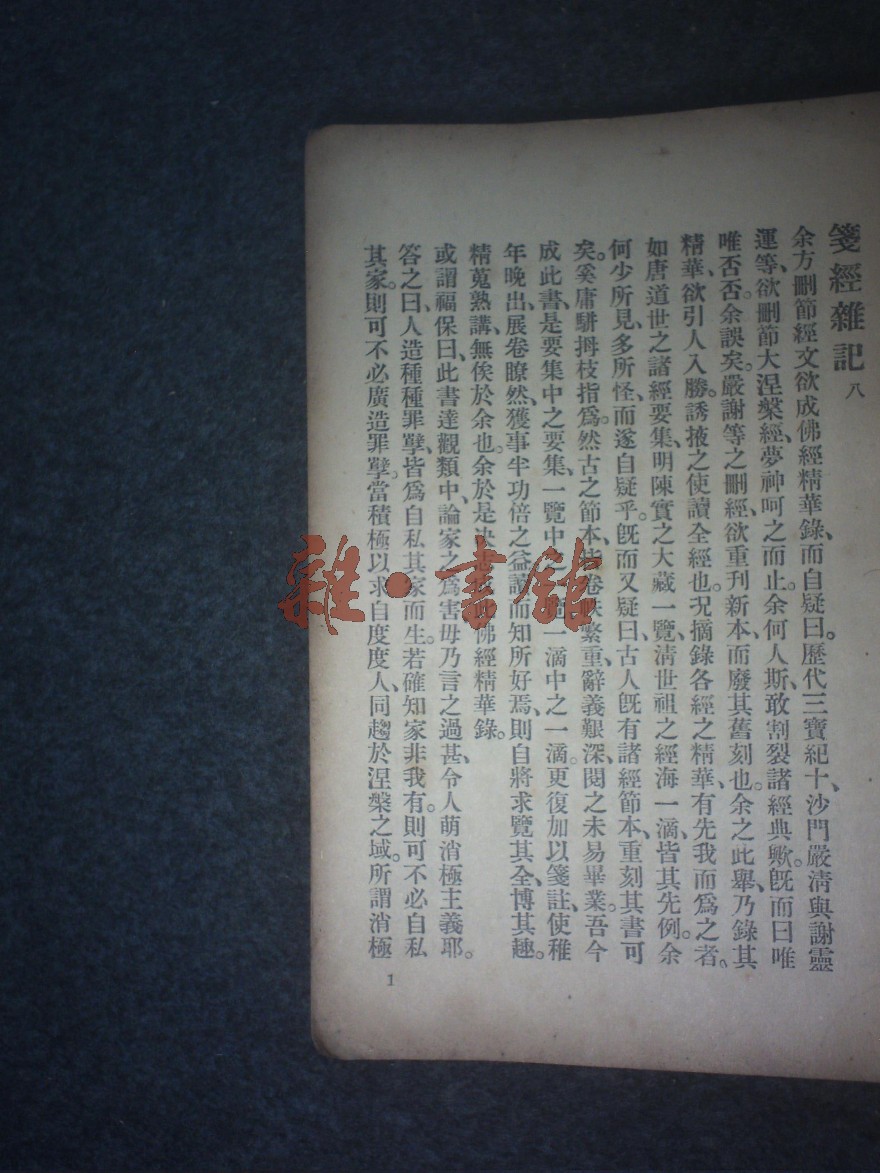 箋經雜記 八
余方刪節經文欲成佛經精華錄、而自疑曰。歷代三寶紀十、沙門嚴淸與謝靈
運等、欲刪節大涅槃經、夢神呵之而止。余何人斯、敢割裂諸經典歟。旣而曰唯
唯否否。余誤矣。嚴謝等之刪經、欲重刊新本、而廢其舊刻也。余之此舉、乃錄其
精華、欲引人入勝。誘掖之使讀全經也。况摘錄各經之精華、有先我而爲之者。
如唐道世之諸經要集、明陳實之大藏一覽、淸世祖之經海一滴、皆其先例。余
何少所見、多所怪、而遂自疑乎。旣而又疑曰、古人旣有諸經節本、重刻其書可
矣。奚庸駢拇枝指爲。然古之節本、卷帙繁重、辭義艱深、閱之未易畢業。吾今
成此書、是要集中之要集、一覽中之一滴中之一滴。更復加以箋註、使稚
年晚出、展卷瞭然、獲事半功倍之益、而知所好焉、則自將求覽其全、博其趣。
精蒐熟講、無俟於余也。余於是決佛經精華錄。
或謂福保曰、此書達觀類中、論家之爲害毋乃言之過甚、令人萌消極主義耶。
答之曰、人造種種罪孽、皆爲自私其家而生。若確知家非我有。則可不必自私
其家。則可不必廣造罪孽。當積極以求自度度人、同趨於涅槃之域。所謂消極
1
雜·書館